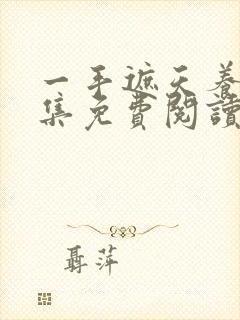 一手遮天養
集免費閱讀
聶萍